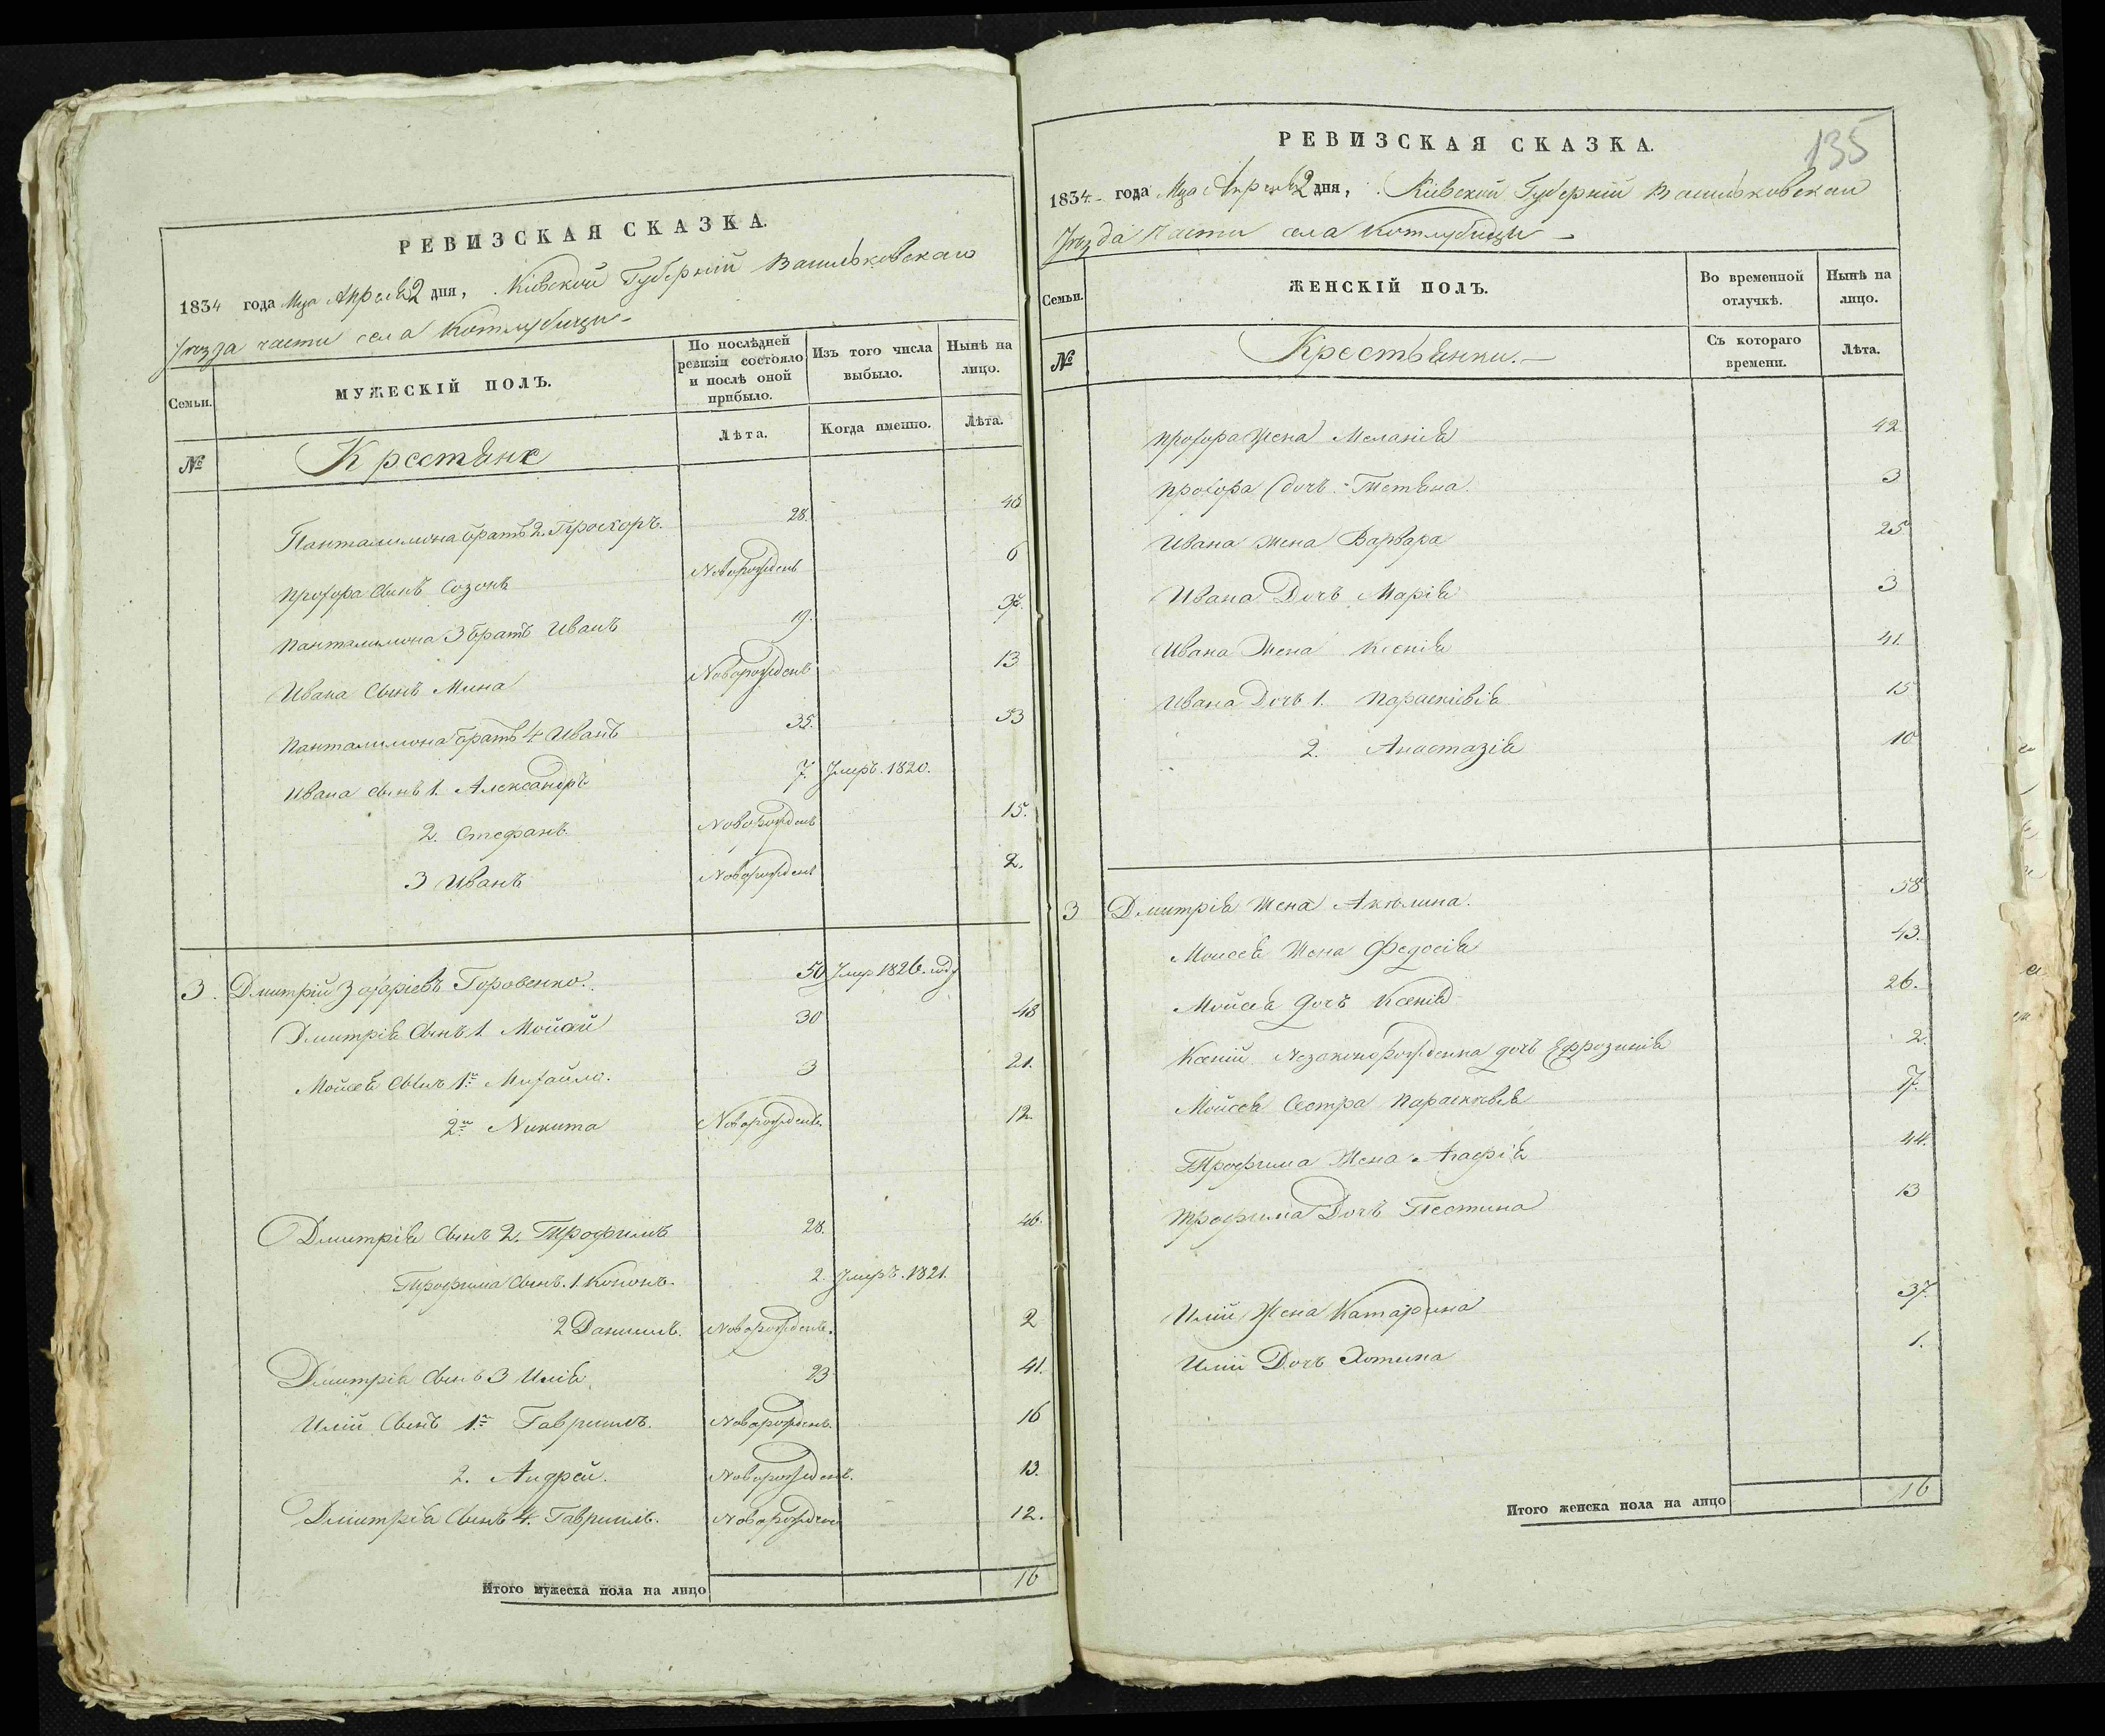 РЕВИЗСКАЯ СКАЗКА.
1834 года Мца Апреля 2 дня, Кіевской Губерніи Васильковскаго
Уѣзда части села Котлубицы
Семьи.
МУЖЕСКІЙ ПОЛЪ.
По послѣдней ревизіи состояло и послѣ оной прибыло.
Изъ того числа выбыло.
Нынѣ на лицо.
№
Крестьяне
Лѣта.
Когда именно.
Лѣта.
Панталимона братъ 2. Прохоръ. 28. 46
Прохора сынъ Созонъ Новорожденъ 6
Панталимона 3 братъ Иванъ 19. 37.
Ивана сынъ Мина Новорожденъ 13
Панталимона братъ 4 Иванъ 35. 53
Ивана сынъ 1. Александръ 7. Умеръ. 1820.
2. Стефанъ. Новорожденъ 15.
3 Иванъ Новорожденъ 2.
3. Дмитрій Захаріевъ Горовенко. 50 Умер 1826. году
Дмитрія сынъ 1. Мойсей 30 48
Мойсея сынъ 1й Михайло. 3 21.
2й Никита Новорожденъ. 12.
Дмитрія сынъ 2. Трофимъ 28. 46.
Трофима сынъ. 1. Кононъ. 2. Умеръ. 1821.
2 Даниилъ. Новорожденъ. 2
Дмитрія сынъ 3 Илія 23 41.
Иліи сынъ 1й Гавриилъ. Новорожденъ. 16
2. Андрей. Новорожденъ. 13.
Дмитрія сынъ 4. Гавриилъ. Новорожден 12.
Итого мужеска пола на лицо 16
135
РЕВИЗСКАЯ СКАЗКА.
1834. года Мца Апреля 2 дня, Кіевской Губерніи Васильковскаго
Уѣзда части села Котлубицы
Семьи.
ЖЕНСКІЙ ПОЛЪ.
Во временной отлучкѣ.
Нынѣ на лицо.
№
Крестьянки.
Съ котораго времени.
Лѣта.
Прохора жена Меланія 42.
Прохора дочь Тетяна. 3
Ивана жена Варвара 25
Ивана Дочъ Марія 3
Ивана Жена Ксенія 41.
Ивана Дочъ 1. Параскивія 15
2. Анастазія 10
3 Дмитрія жена Акѣлина. 58
Моисея жена Федосія 43.
Мойсея дочъ Ксенія 26.
Ксеніи Незаконорожденна дочъ Ефрозинія 2.
Мойсея Сестра Параскивія 17.
Трофима Жена Агафія 44.
Трофима Дочъ Пестина 13
Иліи Жена Катарина 37.
Иліи Дочъ Хотина 1.
Итого женска пола на лицо 16